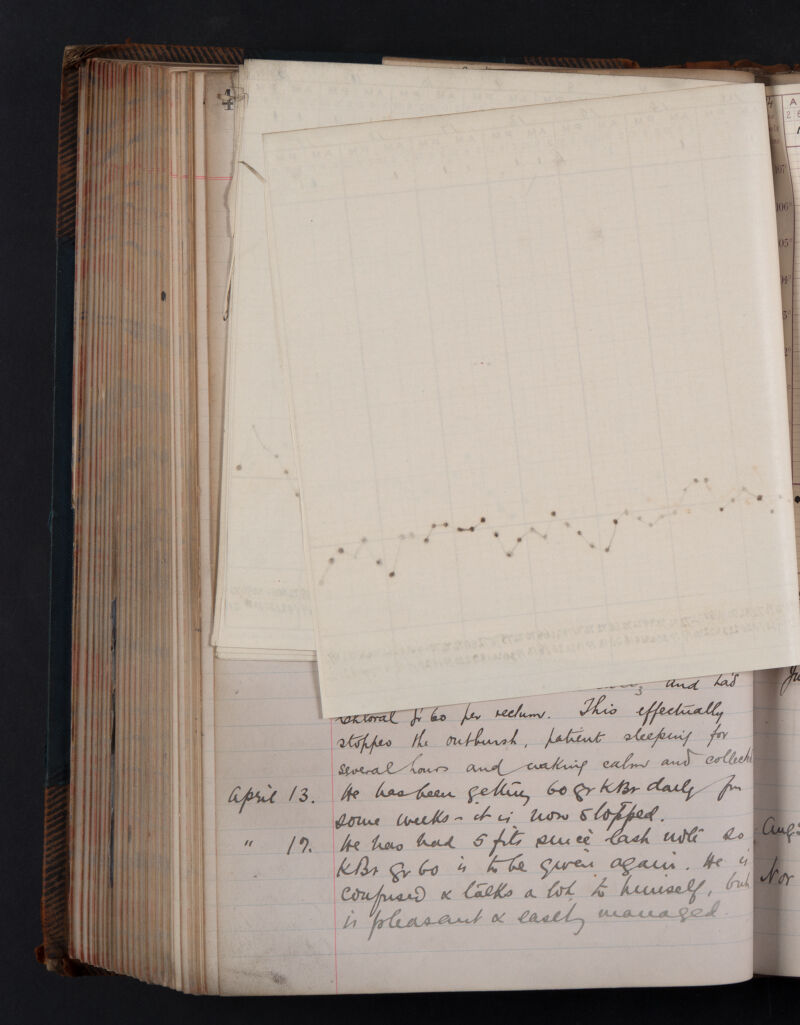 and had
chloral gr 60 per rectum. This effectually
stopped the outburst, patient sleeping for
several hours and waking calm and collect
April 13. He has been getting 60 gr KBr daily for
some weeks - it is now stopped.
" 17. He has had 5 fits since last note so
KBr gr 60 is to be given again. He is
confused & talks a lot to himself, but
is pleasant & easily managed.
107
106°
105°
Aug
Nov